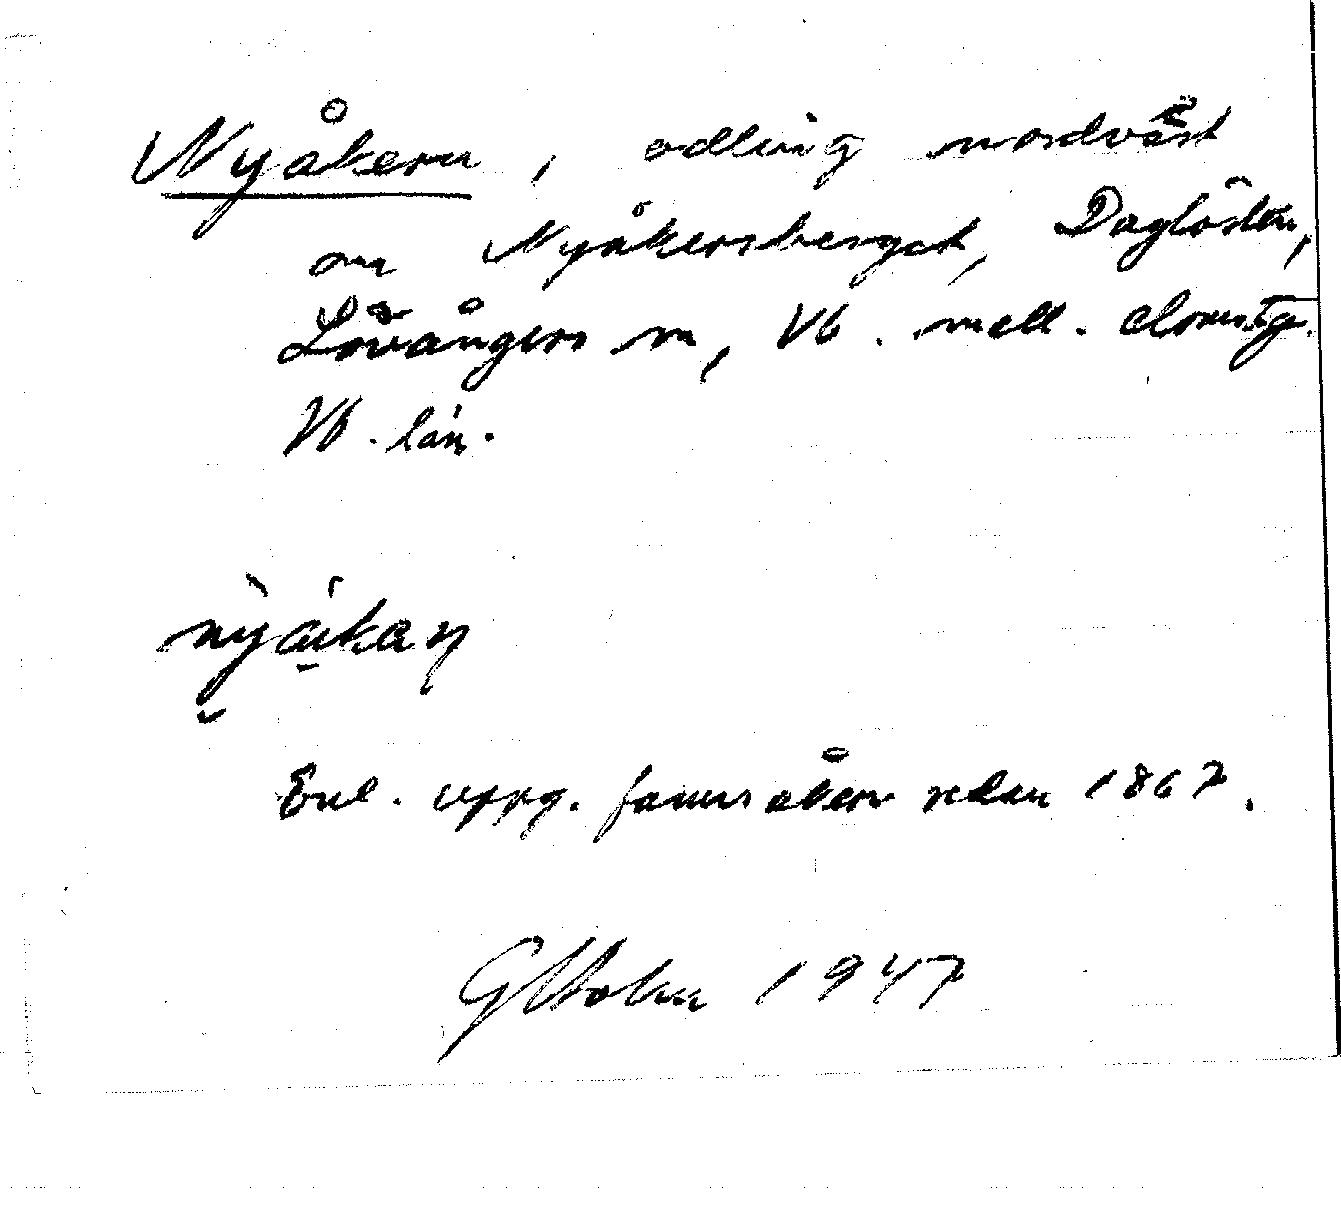 Nyåkern, odling nordväst
om Nyåkersberget, Daglösten,
Lövångers sn, Vb. mell. domstg.
Vb. län.
Enl. uppg. fanns åkern redan 1867.
1947